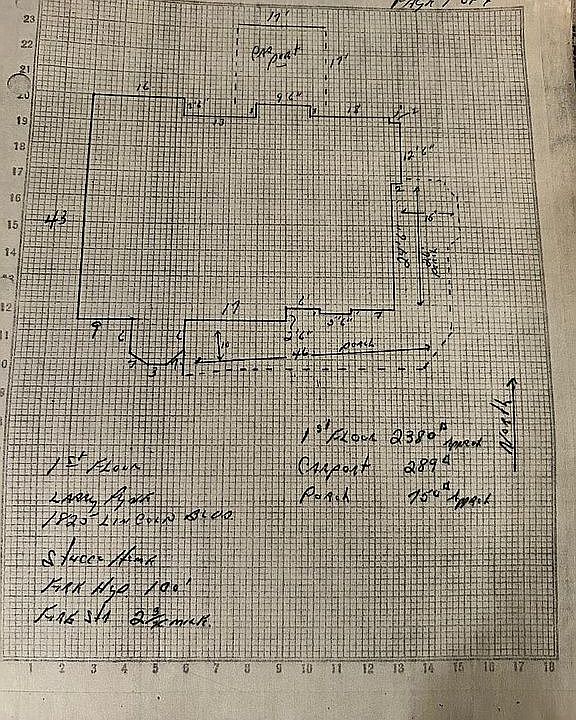 17'
Car
port
17'
16
9'6"
13
18
2
12'6"
2
43
16'
porch
9
6
6
17
6
2'6"
5'6"
7
10
46
porch
3
North
1st Floor 2380 approx
Carport 289
Porch 754 approx
1st Floor
Larry
1825 Lincoln Blvd.
Stucco Home
Fire Hyd 100'
Fire Sta 2 3/4 mile.
23
22
21
20
19
18
17
16
15
14
13
12
11
10
9
8
7
6
5
4
3
2
1
0
1 2 3 4 5 6 7 8 9 10 11 12 13 14 15 16 17 18